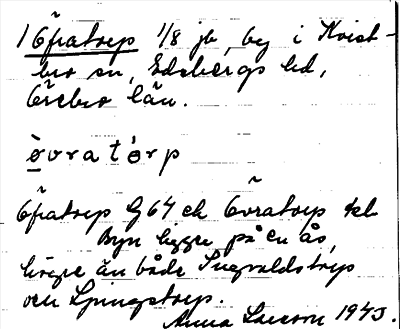 1 Öfratorp 1/8 jb, bg i Kvist-
bro sn, Edsbergs hd,
Örebro län.
òvratòrp
Öfratorp G 64 ek Övratorp kl
Byn ligger på en ås,
högre än både Ingvaldstorp
och Ljungstorp.
Anna Larsson 1943.